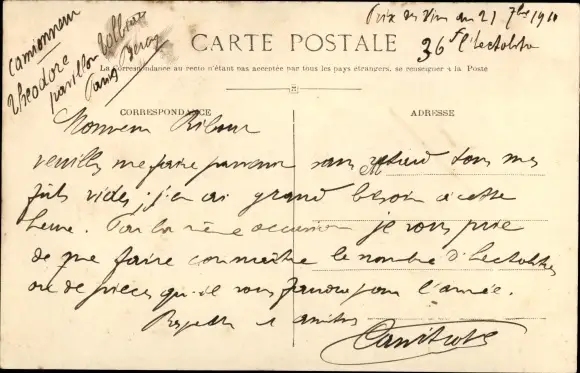 camionneur
Theodore
pavillon
Paris Bercy
Prix du Vin au 21 7bre 1910
36f l'hectolitre
CARTE POSTALE
La Correspondance au recto n'étant pas acceptée par tous les pays étrangers, se renseigner à la Poste
CORRESPONDANCE
ADRESSE
Monsieur Ribour
veuillez me faire parvenir sans retard tous mes
futs vides, j'en ai grand besoin a cette
heure. Par la même occasion je vous prie
de me faire connaître le nombre d'hectolitres
ou de pièces qu'il vous faudra pour l'année.
Respects et amitiés